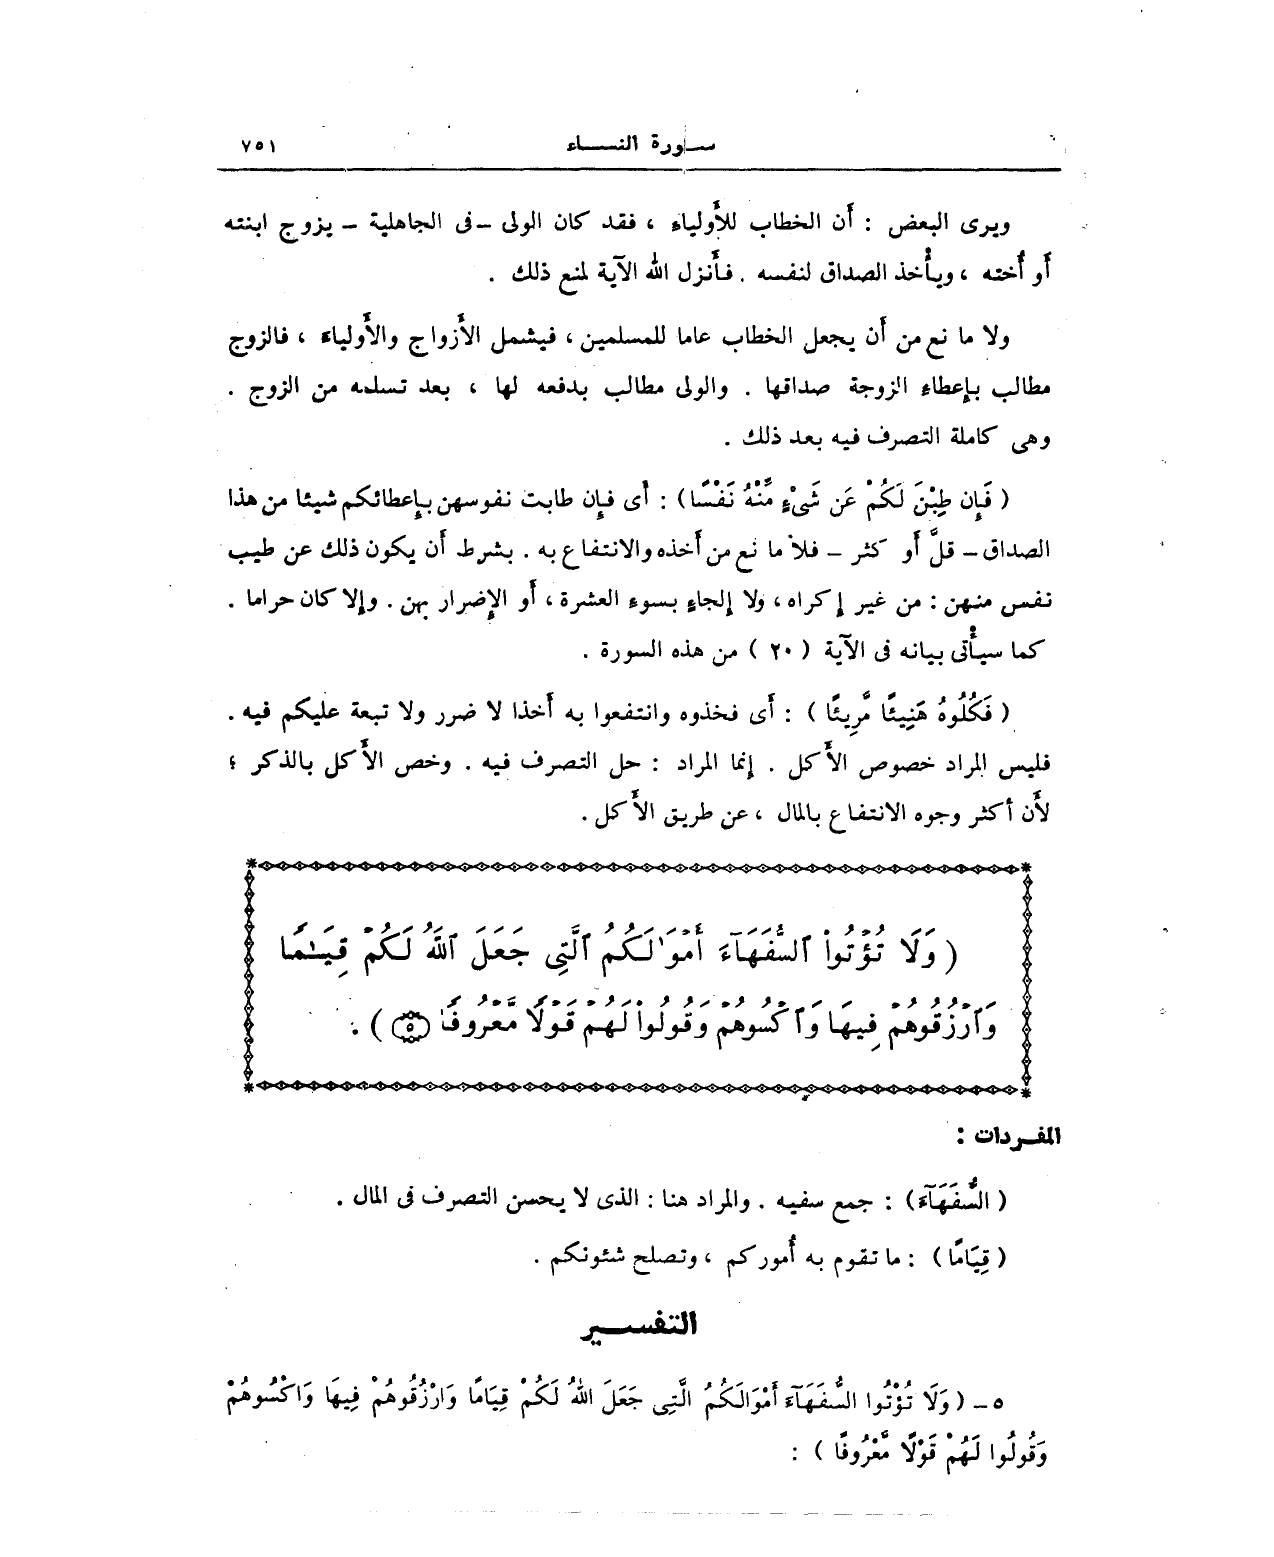 سورة النساء ٧٥١
ويرى البعض : أَن الخطاب للأَولياءِ ، فقد كان الولى – فى الجاهلية – يزوج ابنته
أَو أُخته ، ويأْخذ الصداق لنفسه . فأَنزل الله الآية لمنع ذلك .
ولا ما نع من أَن يجعل الخطاب عاما للمسلمين ، فيشمل الأَزواج والأَولياءَ ، فالزوج
مطالب بإعطاءِ الزوجة صداقها . والولى مطالب بدفعه لها ، بعد تسلمه من الزوج .
وهى كاملة التصرف فيه بعد ذلك .
( فَإِن طِبْنَ لَكُمْ عَن شَىْءٍ مِّنْهُ نَفْسًا ) : أَى فإِن طابت نفوسهن بإِعطائكم شيئا من هذا
الصداق – قلَّ أَو كثر – فلا ما نع من أَخذه والانتفاع به . بشرط أَن يكون ذلك عن طيب
نفس منهن : من غير إكراه ، ولا إلجاءٍ بسوء العشرة ، أَو الإِضرار بهن . وإلا كان حراما .
كما سيأْتى بيانه فى الآية ( ٢٠ ) من هذه السورة .
( فَكُلُوهُ هَنِيئًا مَّرِيئًا ) : أَى فخذوه وانتفعوا به أَخذا لا ضرر ولا تبعة عليكم فيه .
فليس المراد خصوص الأَكل . إنما المراد : حل التصرف فيه . وخص الأَكل بالذكر ؛
لأَن أكثر وجوه الانتفاع بالمال ، عن طريق الأَكل .
( وَلَا تُؤْتُوا۟ ٱلسُّفَهَآءَ أَمْوَٰلَكُمُ ٱلَّتِى جَعَلَ ٱللَّهُ لَكُمْ قِيَـٰمًا
وَٱرْزُقُوهُمْ فِيهَا وَٱكْسُوهُمْ وَقُولُوا۟ لَهُمْ قَوْلًا مَّعْرُوفًا ۝٥ ) .
المفردات :
( السُّفَهَآءَ ) : جمع سفيه . والمراد هنا : الذى لا يحسن التصرف فى المال .
( قِيَامًا ) : ما تقوم به أُموركم ، وتصلح شئونكم .
التفسير
٥ – ( وَلَا تُؤْتُوا السُّفَهَآءَ أَمْوَالَكُمُ الَّتِى جَعَلَ اللهُ لَكُمْ قِيَامًا وَارْزُقُوهُمْ فِيهَا وَاكْسُوهُمْ
وَقُولُوا لَهُمْ قَوْلًا مَّعْرُوفًا ) :